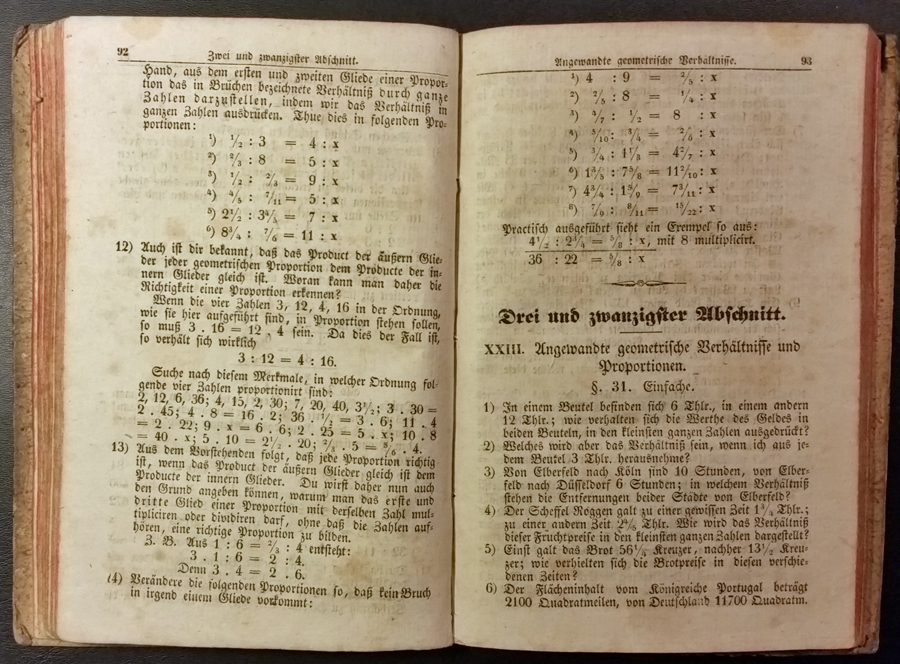 92
Zwei und zwanzigster Abschnitt.
Hand, aus dem ersten und zweiten Gliede einer Propor-
tion das in Brüchen bezeichnete Verhältniß durch ganze
Zahlen darzustellen, indem wir das Verhältniß in
ganzen Zahlen ausdrücken. Thue dies in folgenden Pro-
portionen:
¹) ½ : 3 = 4 : x
²) ⅔ : 8 = 5 : x
³) ½ : ⅔ = 9 : x
⁴) ⅘ : ⁷/₁₁ = 5 : x
⁵) 2½ : 3⅘ = 7 : x
⁶) 8¾ : ⁷/₆ = 11 : x
12) Auch ist dir bekannt, daß das Product der äußern Glie-
der jeder geometrischen Proportion dem Producte der in-
nern Glieder gleich ist. Woran kann man daher die
Richtigkeit einer Proportion erkennen?
Wenn die vier Zahlen 3, 12, 4, 16 in der Ordnung,
wie sie hier aufgeführt sind, in Proportion stehen sollen,
so muß 3 . 16 = 12 . 4 sein. Da dies der Fall ist,
so verhält sich wirklich
3 : 12 = 4 : 16.
Suche nach diesem Merkmale, in welcher Ordnung fol-
gende vier Zahlen proportionirt sind:
2, 12, 6, 36; 4, 15, 2, 30; 7, 20, 40, 3½; 3 . 30 =
2 . 45; 4 . 8 = 16 . 2; 36 . ½ = 3 . 6; 11 . 4
= 2 . 22; 9 . x = 6 . 6; 2 . 25 = 5 . x; 10 . 8
= 40 . x; 5 . 10 = 2½ . 20; ⅔ . 5 = ⁵/₆ . 4.
13) Aus dem Vorstehenden folgt, daß jede Proportion richtig
ist, wenn das Product der äußern Glieder gleich ist dem
Producte der innern Glieder. Du wirst daher nun auch
den Grund angeben können, warum man das erste und
dritte Glied einer Proportion mit derselben Zahl mul-
tipliciren oder dividiren darf, ohne daß die Zahlen auf-
hören, eine richtige Proportion zu bilden.
Z. B. Aus 1 : 6 = ⅔ : 4 entsteht:
3 . 1 : 6 = 2 : 4.
Denn 3 . 4 = 2 . 6.
(4) Verändere die folgenden Proportionen so, daß kein Bruch
in irgend einem Gliede vorkommt:
Angewandte geometrische Verhältnisse.
93
¹) 4 : 9 = ⅖ : x
²) ⅖ : 8 = ¼ : x
³) ⁵/₇ : ½ = 8 : x
⁴) ⁵/₁₀ : ¾ = ²/₆ : x
⁵) ¾ : 1⅓ = 4²/₇ : x
⁶) 1⅗ : 7⅝ = 11²/₁₀ : x
⁷) 4¾ : 1⁵/₉ = 7³/₁₁ : x
⁸) ⁷/₉ : ⁸/₁₁ = ¹⁵/₂₂ : x
Practisch ausgeführt sieht ein Exempel so aus:
4½ : 2¾ = ⅝ : x, mit 8 multiplicirt.
36 : 22 = ⅝ : x
Drei und zwanzigster Abschnitt.
XXIII. Angewandte geometrische Verhältnisse und
Proportionen.
§. 31. Einfache.
1) In einem Beutel befinden sich 6 Thlr., in einem andern
12 Thlr.; wie verhalten sich die Werthe des Geldes in
beiden Beuteln, in den kleinsten ganzen Zahlen ausgedrückt?
2) Welches wird aber das Verhältniß sein, wenn ich aus je-
dem Beutel 3 Thlr. herausnehme?
3) Von Elberfeld nach Köln sind 10 Stunden, von Elber-
feld nach Düsseldorf 6 Stunden; in welchem Verhältniß
stehen die Entfernungen beider Städte von Elberfeld?
4) Der Scheffel Roggen galt zu einer gewissen Zeit 1¾ Thlr.;
zu einer andern Zeit Thlr. Wie wird das Verhältniß
dieser Fruchtpreise in den kleinsten ganzen Zahlen dargestellt?
5) Einst galt das Brot 56¼ Kreuzer, nachher 13½ Kreu-
zer; wie verhielten sich die Brotpreise in diesen verschie-
denen Zeiten?
6) Der Flächeninhalt vom Königreiche Portugal beträgt
2100 Quadratmeilen, von Deutschland 11700 Quadratm.